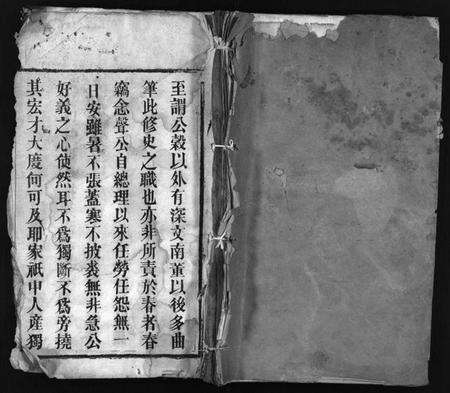 至謂公穀以外有深文南董以後多曲
筆此修史之職也亦非所責於春者春
竊念聲公自總理以來任勞任怨無一
日安雖暑不張蓋寒不披裘無非急公
好義之心使然耳不爲獨斷不爲旁撓
其宏才大度何可及耶家祇中人產獨